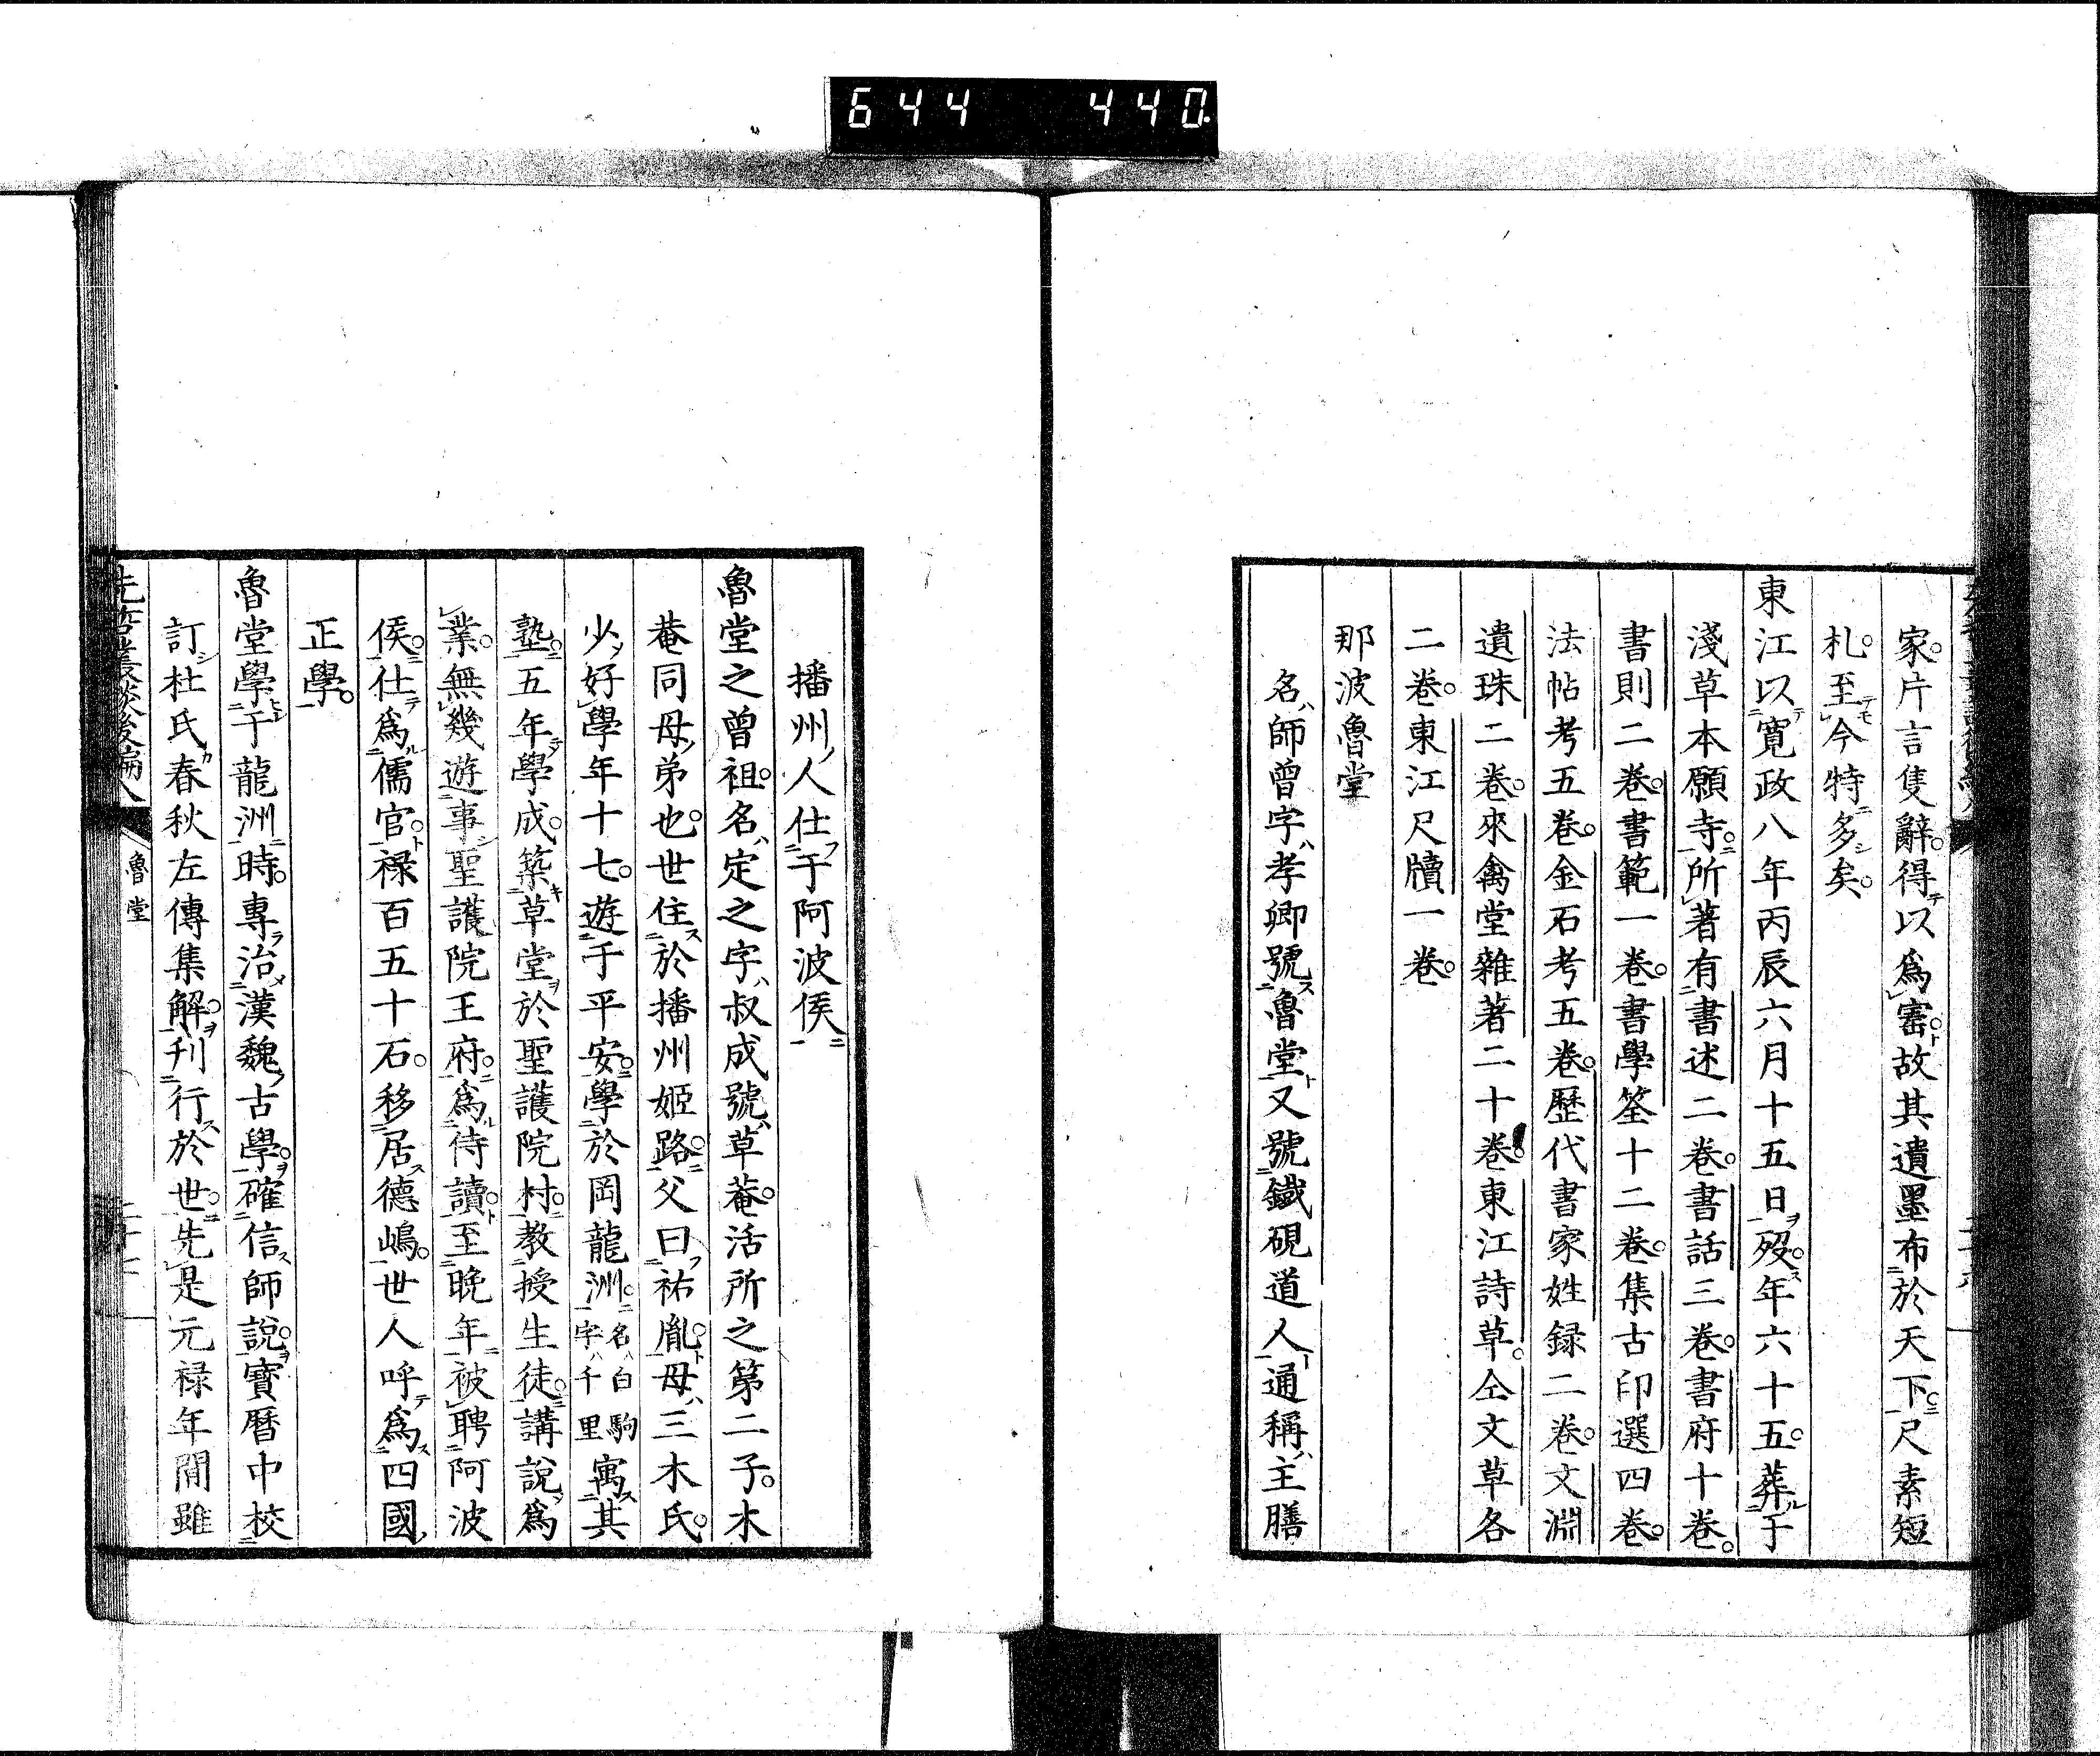 644 440
家。片言隻辭。得テ以爲審ト。故其遺墨布於天下ニ。尺素短
札。至テモ今特ニ多シ矣。
東江以テ寛政八年丙辰六月十五日ヲ歿ス。年六十五。葬ル于
淺草本願寺ニ。所著有書述二卷。書話三卷。書府十卷。
書則二卷。書範一卷。書學筌十二卷。集古印選四卷。
法帖考五卷。金石考五卷。歷代書家姓録二卷。文淵
遺珠二卷。來禽堂雜著二十卷。東江詩草。仝文草各
二卷。東江尺牘一卷。
那波魯堂
名ハ師曾字ハ孝卿號ス魯堂ト又號鐵硯道人ト通稱ハ主膳
播州ノ人仕フ于阿波侯ニ
魯堂之曾祖。名ハ定之字ハ叔成號ハ草菴。活所之第二子。木
菴同母ノ弟也。世住ス於播州姬路ニ。父曰フ祐胤ト。母ハ三木氏。
少ノ好學年十七。遊于平安ニ。學於岡龍洲ニ。名ハ白駒字ハ千里寓ス其
塾ニ。五年テ學成。築キ草堂ヲ於聖護院村ニ。教授生徒ニ。講說ヲ爲
業。無幾遊事シ聖護院王府ニ。爲ル侍讀ト。至晩年ニ被聘阿波
侯ニ。仕テ爲ル儒官ト。禄百五十石。移居ス德嶋。世人呼テ爲ス四國ノ
正學。
魯堂學于龍洲ニ時。專ラ治メ漢魏ノ古學ヲ。確信ス師說ヲ。寶暦中校
訂シ杜氏カ春秋左傳集解ヲ。刋行ス於世ニ。先是元禄年間雖
先哲叢談後編八
魯堂